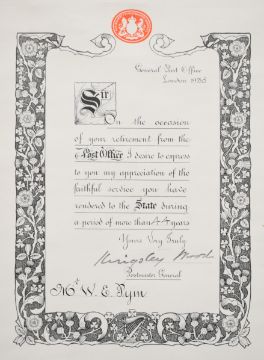 General Post Office
London 1935
Sir
On the occasion
of your retirement from the
Post Office I desire to express
to you my appreciation of the
faithful service you have
rendered to the State during
a period of more than 44 years
Yours Very Truly
Kingsley Wood
Postmaster General
Mr W. E. Pym